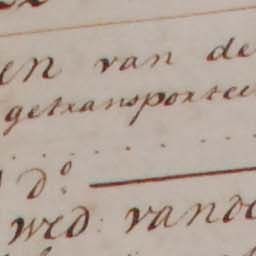 en van de
getransportee
do
wed: vande